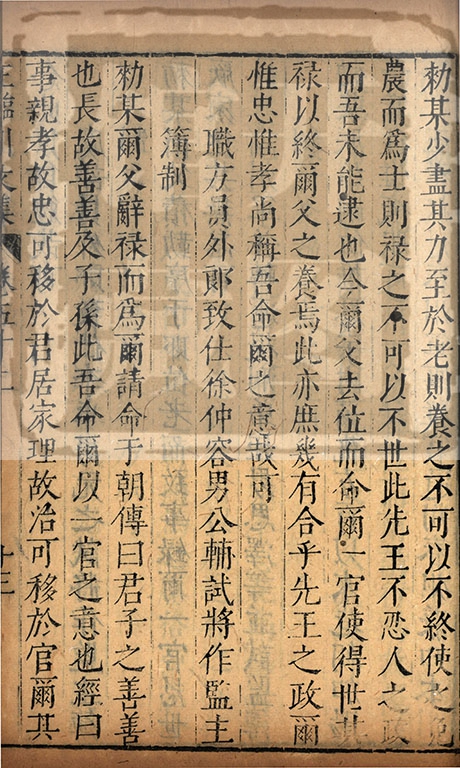 勑某少盡其力至於老則養之不可以不終使之免
農而爲士則禄之不可以不世此先王不忍人之政
而吾未能逮也今爾父去位而命爾一官使得世其
禄以終爾父之養焉此亦庶幾有合乎先王之政爾
惟忠惟孝尚稱吾命爾之意哉可
職方員外郞致仕徐仲容男公輔試將作監主
簿制
勑某爾父辭禄而爲爾請命于朝傳曰君子之善善
也長故善善及子孫此吾命爾以一官之意也經曰
事親孝故忠可移於君居家理故治可移於官爾其
王臨川文集 卷五十二
十三